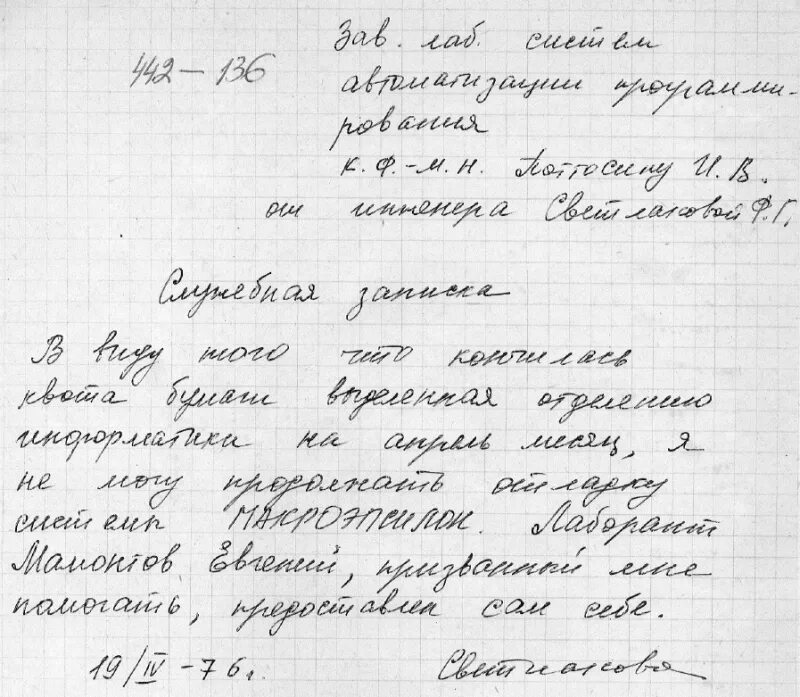 442-136
Зав. лаб. систем
автоматизации программи-
рования
к. ф.-м. н. Поттосину И. В.
от инженера Светлаковой Ф. Г.
Служебная записка
В виду того что кончилась
квота бумаги выделенная отделению
информатики на апрель месяц, я
не могу продолжать отладку
системы МАКРОЭПСИЛОН. Лаборант
Мамонтов Евгений, призванный мне
помогать, предоставлен сам себе.
19/IV-76г. Светлакова